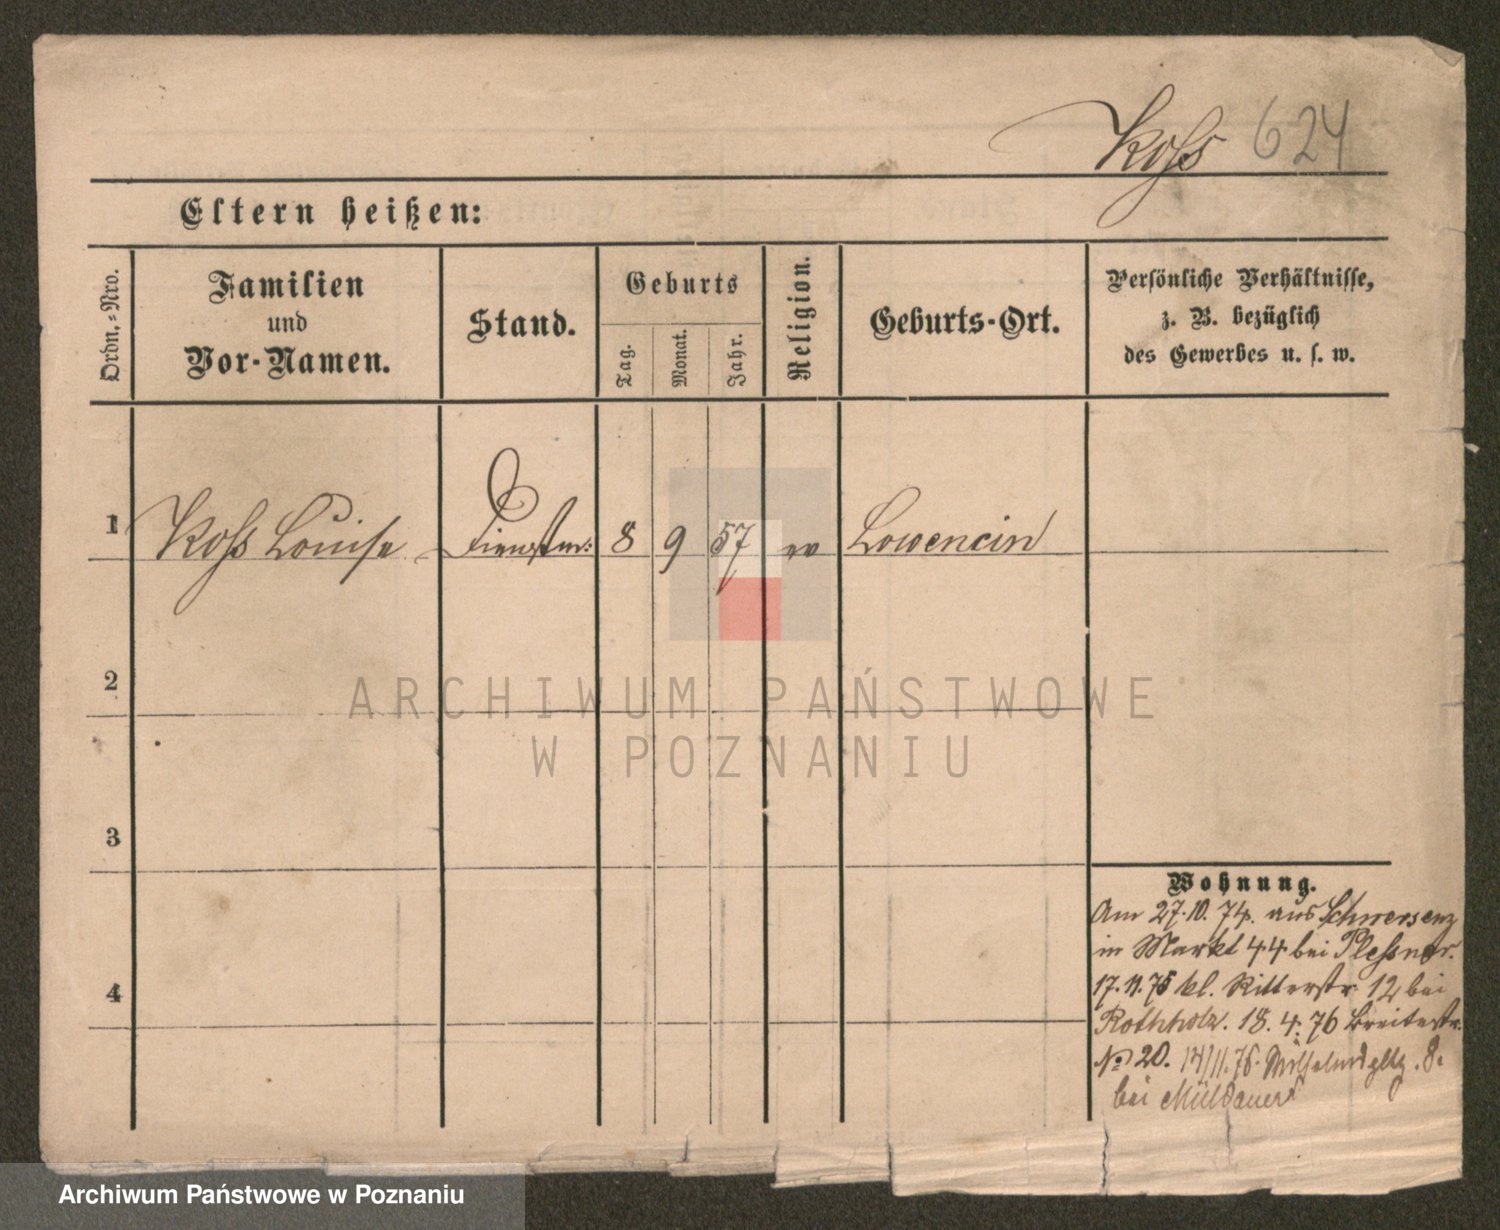 Koſs 624
Eltern heißen:
Ordn.-Nro.
Familien
und
Vor-Namen.
Stand.
Geburts
Tag.
Monat.
Jahr.
Religion.
Geburts-Ort.
Persönliche Verhältnisse,
z. B. bezüglich
des Gewerbes u. s. w.
1 Koſs Louise Dienstm: 8 9 57 ev Lowencin
2
3
4
Wohnung.
Am 27.10.74. aus Schwersenz
in Markt 44 bei Pleſsner.
17.11.75 kl. Ritterstr 12 bei
Rothholz. 18.4.76 Breitestr.
No 20. 14/11.76. Wilhelmspltz. 8.
bei
ARCHIWUM PAŃSTWOWE
W POZNANIU
Archiwum Państwowe w Poznaniu